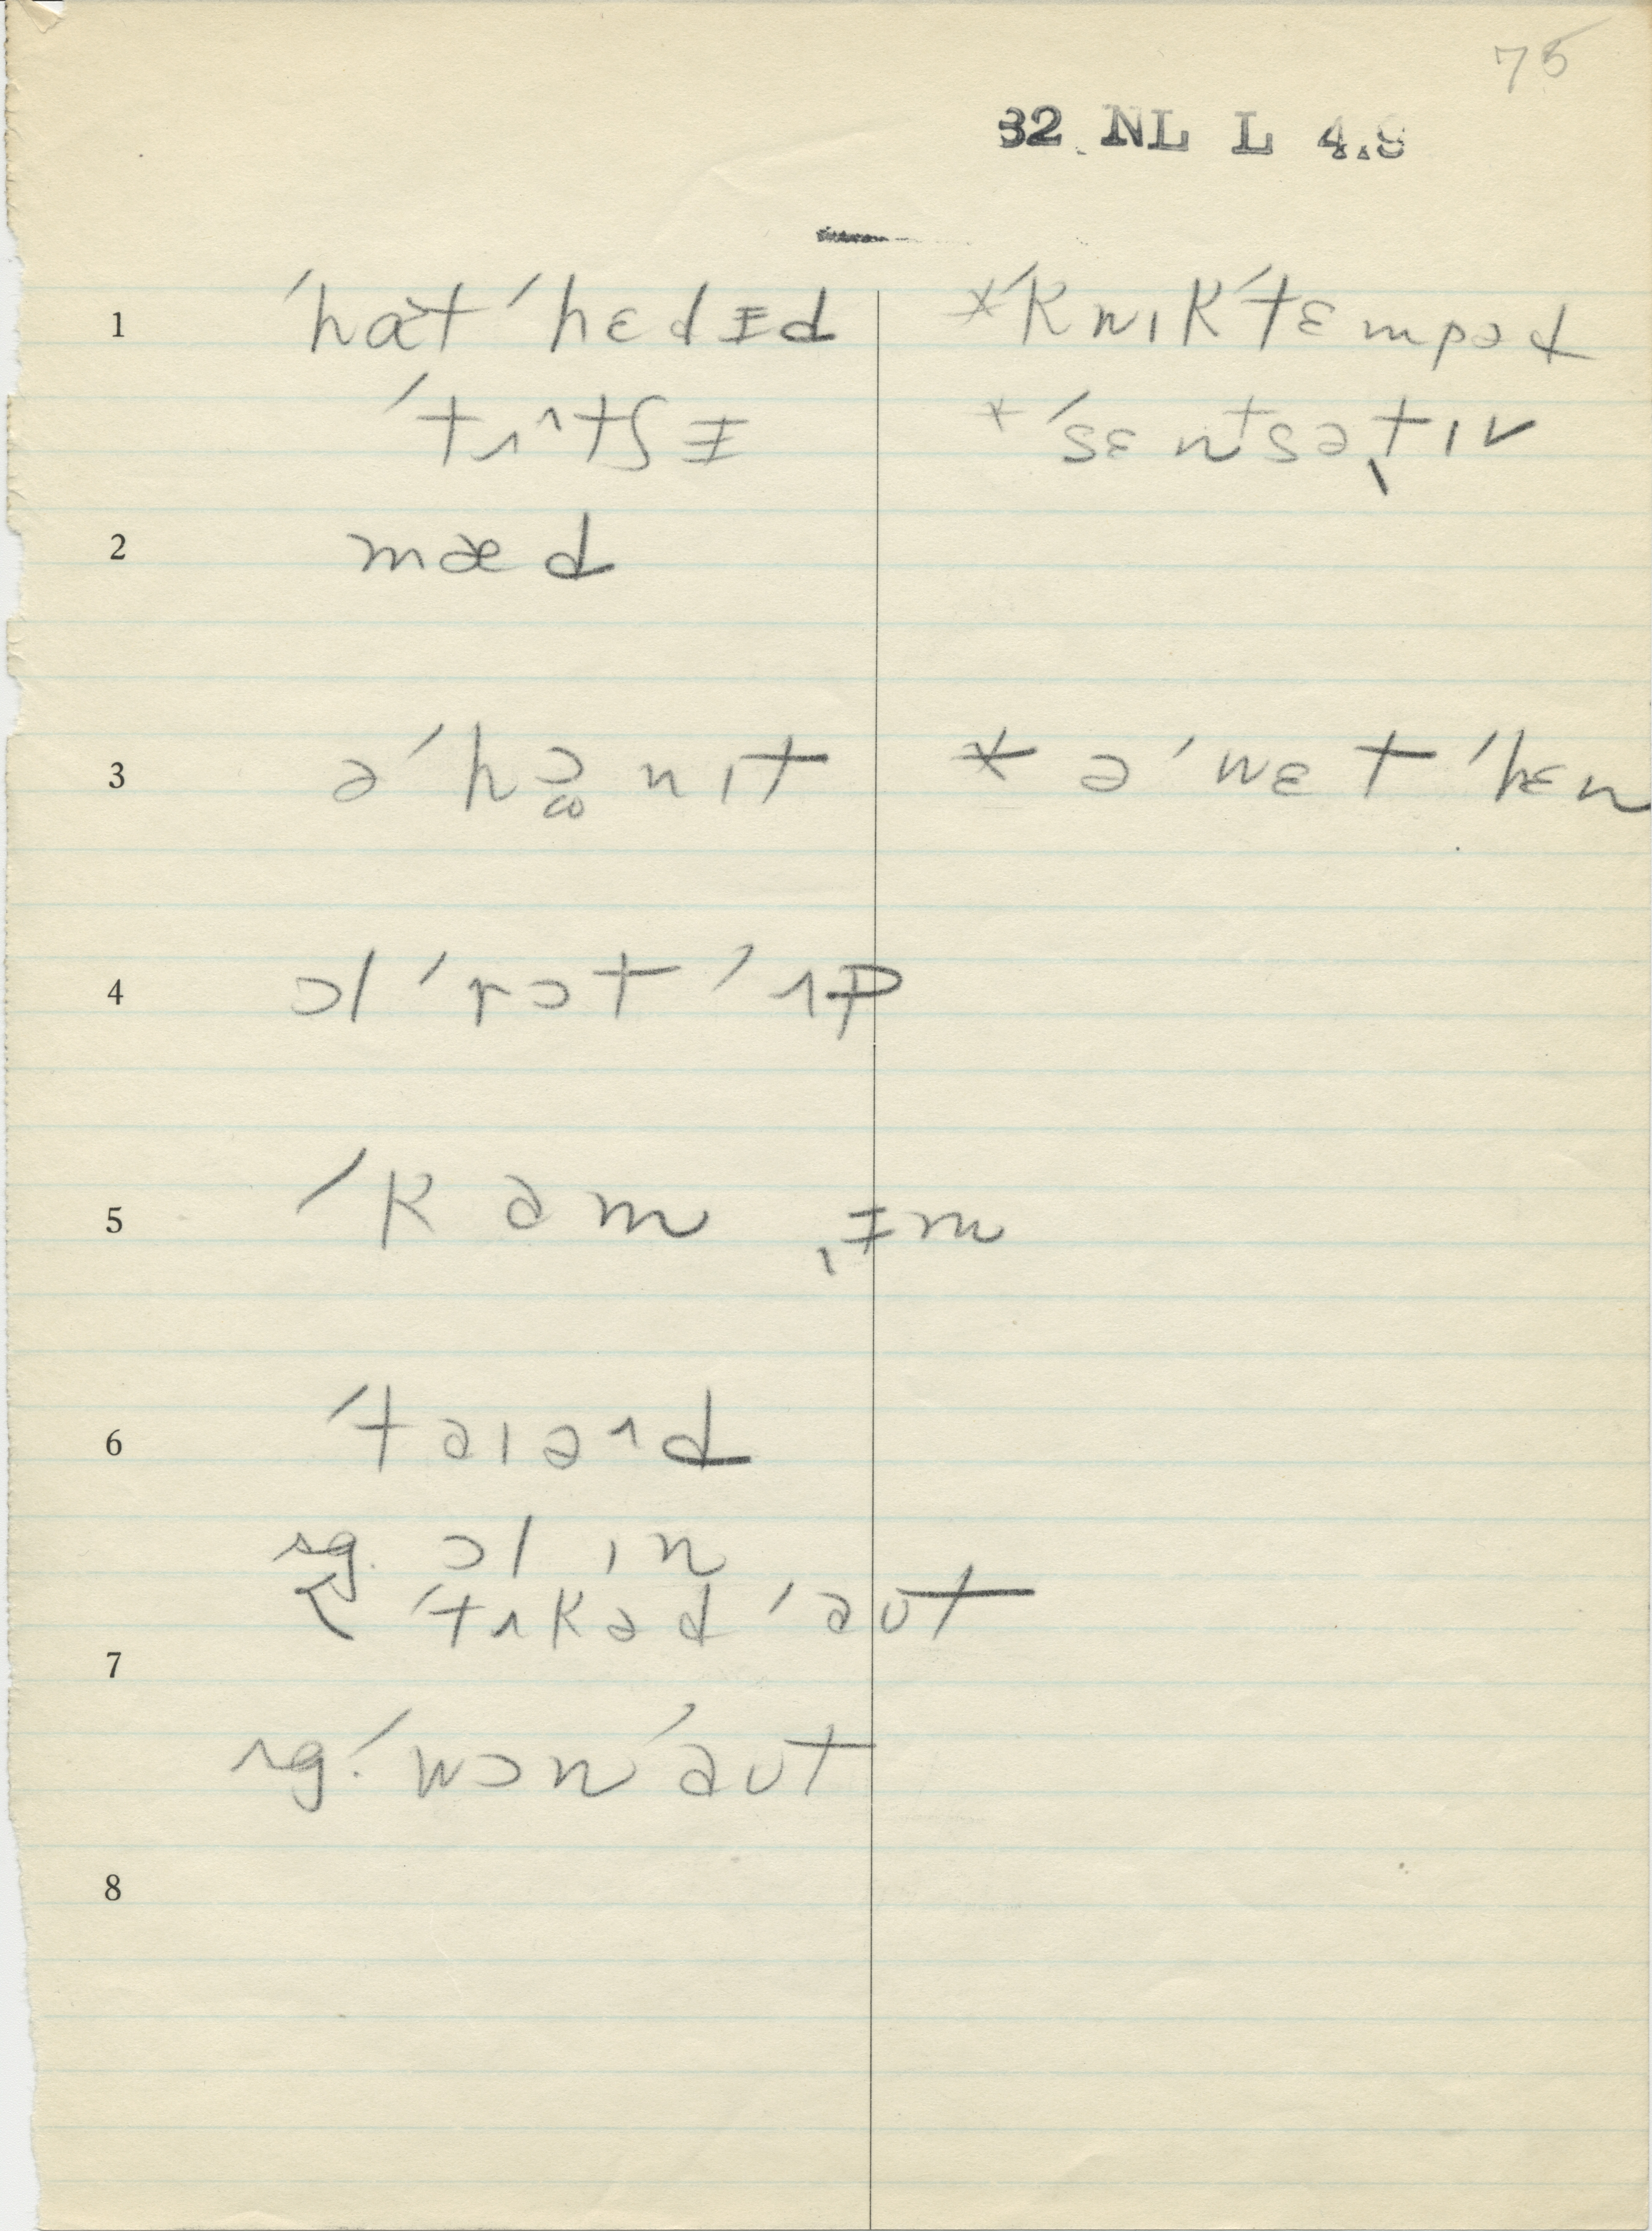 75
32 NL L 4.9
1 ˈhat ˈhɛdɪ̵d *ˈkwɪkˈtɛmpəd
ˈtʌ^tʃɪ̵ *ˈsɛnᵗsəˌtɪv
2 mæd
3 əˈhɔnɪt * əˈwɛtˈhɛn
4 ɔlˈrɔtˈʌp
5 ˈkam ˌɪ̵m
6 ˈtaɪə^d
sg. ɔl ɪn
ˈtʌkəd ˈaʊt
7
sg. ˈwɔnˈaʊt
8